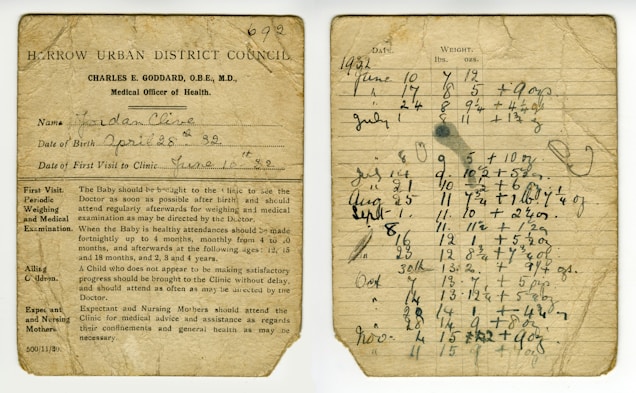 692
HARROW URBAN DISTRICT COUNCIL
CHARLES E. GODDARD, O.B.E., M.D.,
Medical Officer of Health.
Name Jordan Clive
Date of Birth April 28th 32
Date of First Visit to Clinic June 10th 32
First Visit. The Baby should be brought to the Clinic to see the
Periodic Doctor as soon as possible after birth and should
Weighing attend regularly afterwards for weighing and medical
and Medical examination as may be directed by the Doctor.
Examination. When the Baby is healthy attendances should be made
fortnightly up to 4 months, monthly from 4 to 10
months, and afterwards at the following ages: 12, 15
and 18 months, and 2, 3 and 4 years.
Ailing A Child who does not appear to be making satisfactory
Children. progress should be brought to the Clinic without delay,
and should attend as often as may be directed by the
Doctor.
Expectant Expectant and Nursing Mothers should attend the
and Nursing Clinic for medical advice and assistance as regards
Mothers. their confinements and general health as may be
necessary.
500/11/30.
DATE. WEIGHT.
lbs. ozs.
1932
June 10 7 12
" 17 8 5 + 9 ozs
" 24 8 9¼ + 4¼ oz
July 1 8 11 + 1¾ oz
" 8 9 5 + 10 oz
July 14 9 10½ + 5½ oz
" 21 10
Aug 25 11 7¾ + 1 lb 7¼ oz
Sept 1. 11 10 + 2¼ oz
" 8 11. 11½ + 1½ oz
" 16 12 1 + 5½ oz
" 23 12 8¾ + 7¾ oz
30th 13. 2.
Oct 7 13. 7 + 5 ozs
" 14 13. 12¼ + 5¼ oz
14 1
" 28 14 9 + 8 oz
Nov. 4 15 + 9 oz
" 11 15 9